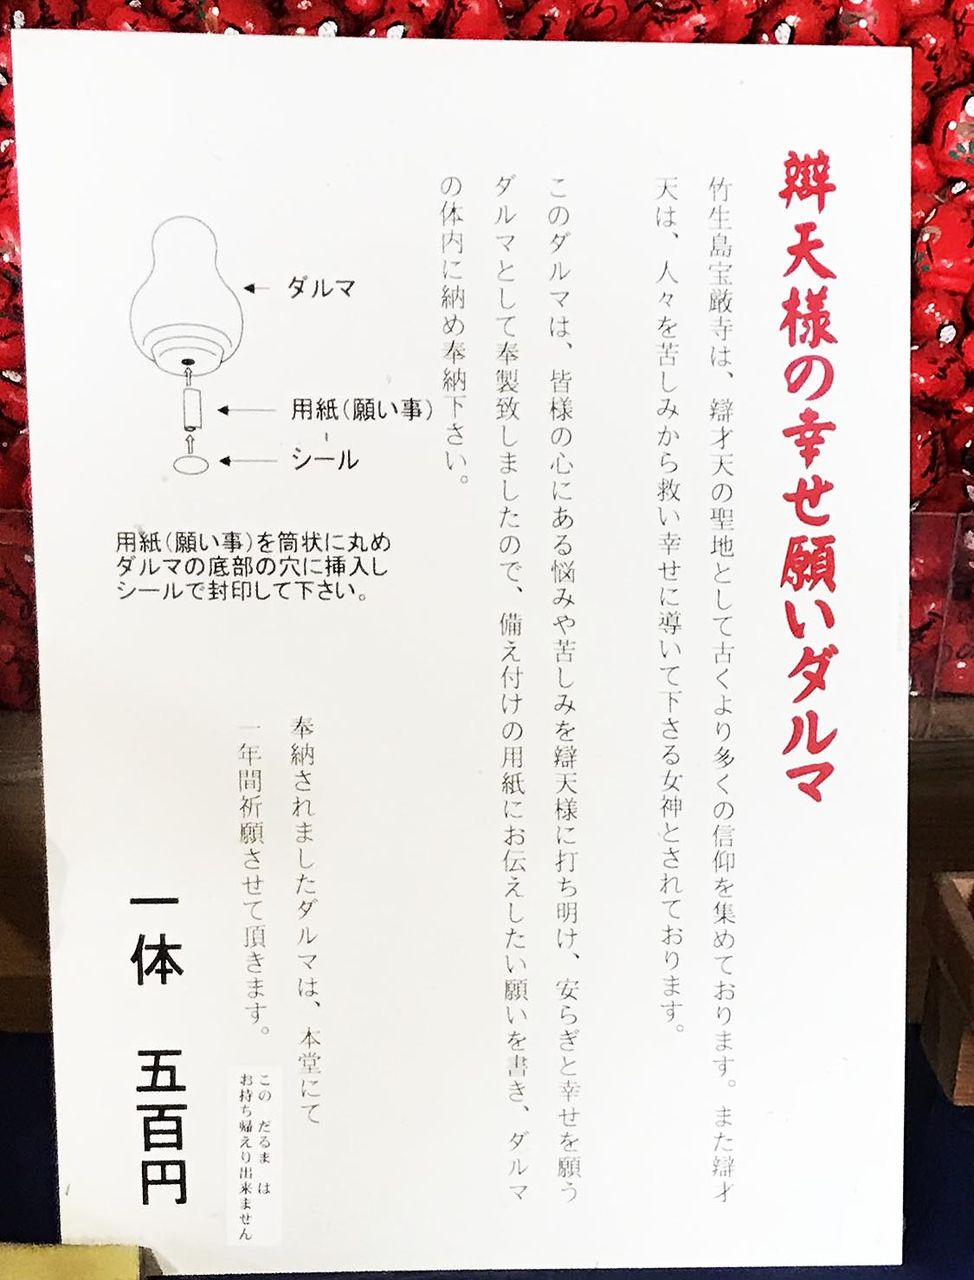 辯天様の幸せ願いダルマ
竹生島宝厳寺は、辯才天の聖地として古くより多くの信仰を集めております。また辯才
天は、人々を苦しみから救い幸せに導いて下さる女神とされております。
このダルマは、皆様の心にある悩みや苦しみを辯天様に打ち明け、安らぎと幸せを願う
ダルマとして奉製致しましたので、備え付けの用紙にお伝えしたい願いを書き、ダルマ
の体内に納め奉納下さい。
ダルマ
用紙(願い事)
シール
用紙(願い事)を筒状に丸め
ダルマの底部の穴に挿入し
シールで封印して下さい。
奉納されましたダルマは、本堂にて
一年間祈願させて頂きます。
この だるま は
お持ち帰えり出来ません
一体 五百円